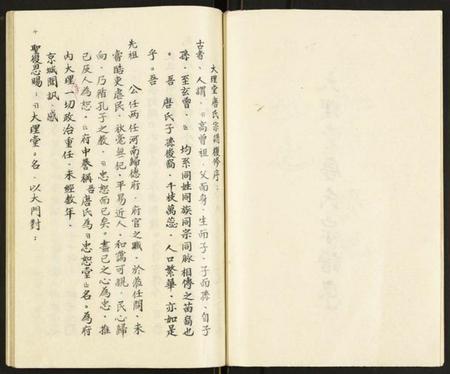 大理堂唐氏宗譜復修序：
古者、人謂「高曾祖、父而身、生而子、子而孫、自子
孫、至玄曾、」均系同姓同族同宗同脈相傳之苗裔也
。吾 唐氏子孫後裔、千枝萬蕊、人口繁華、亦如是
乎。吾
先祖 公任兩任河南歸德府、府官之職、於蒞任間、未
嘗酷吏虐民、秋毫無犯、平易近人、和藹可親、民心歸
向、乃踏孔子之教、「忠恕而已矣。盡己之心為忠、推
己及人為恕。」府中譽稱吾唐氏為「忠恕堂」名。為府
內大理一切政治重任、未經数年、
京城聞訊、感
聖復恩賜：「大理堂」名、以大門對：